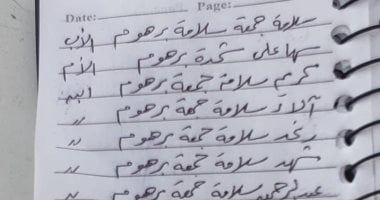 Date: Page:
سلامة جمعة سلامة برهوم الأب
سها على شحدة برهوم الأم
كرم سلامة جمعة برهوم ابن
آلاء سلامة جمعة برهوم "
رغد سلامة جمعة برهوم "
شهد سلامة جمعة برهوم "
عبدالرحمن سلامة جمعة برهوم "